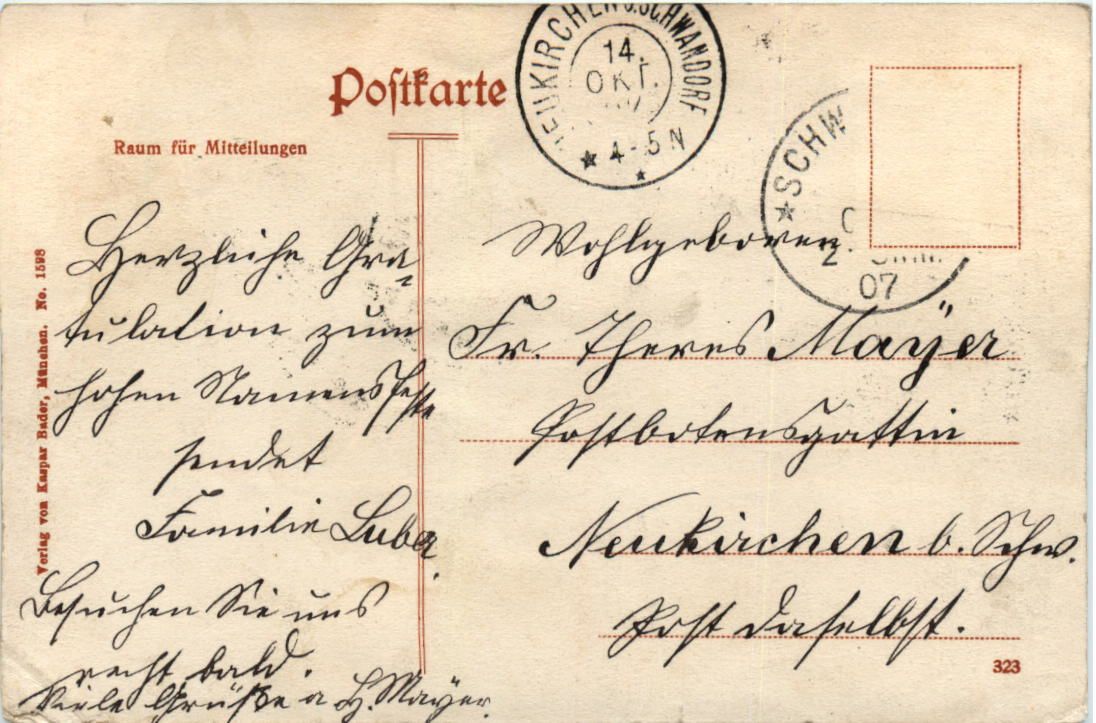 Postkarte
Raum für Mitteilungen
NEUKIRCHEN B. SCHWANDORF
14.
OKT.
07
4-5 N
SCHW
07
Herzliche Gra-
tulation zum
hohen Namensfeste
sendet
Familie Luber.
Besuchen Sie uns
recht bald.
Viele Grüße a H. Mayer.
Wohlgeboren
Fr. Theres Mayer
Postbotensgattin
Neukirchen b. Schw.
Post daselbst.
323
Verlag von Kaspar Bader, München. No. 1598